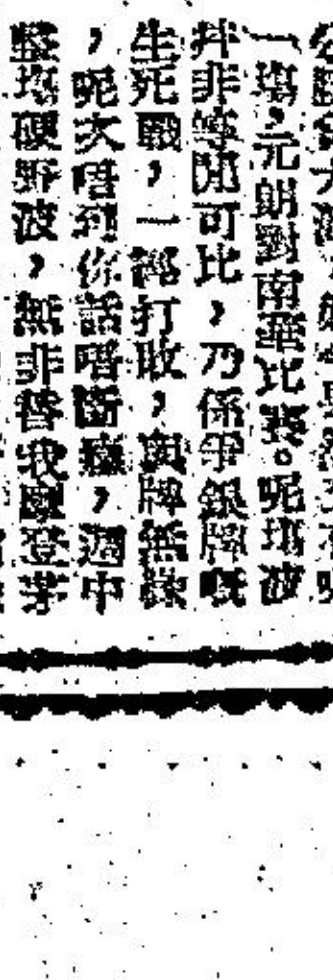 一塲，元朗對南華比賽。呢塲波
并非等閒可比，乃係爭銀牌嘅
生死戰，一經打敗，與牌無緣
，呢次唔到你話唔斷癮，週中
塲硬野波，無非替我登